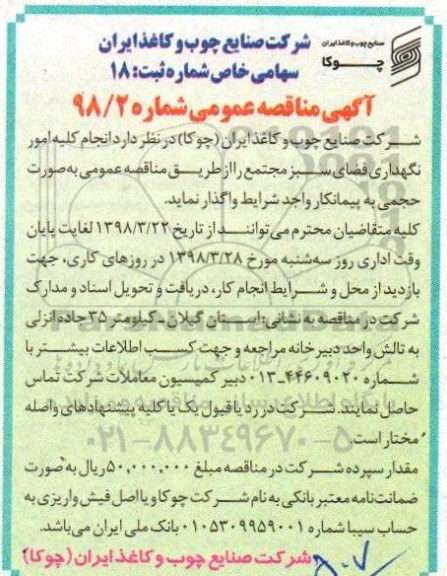 شرکت صنایع چوب و کاغذ ایران
سهامی خاص شماره ثبت: ۱۸
صنایع چوب و کاغذ ایران
چوکا
آگهی مناقصه عمومی شماره ۹۸/۲
شرکت صنایع چوب و کاغذ ایران (چوکا) در نظر دارد انجام کلیه امور
نگهداری فضای سبز مجتمع را از طریق مناقصه عمومی به صورت
حجمی به پیمانکار واجد شرایط واگذار نماید.
کلیه متقاضیان محترم می‌توانند از تاریخ ۱۳۹۸/۳/۲۲ لغایت پایان
وقت اداری روز سه‌شنبه مورخ ۱۳۹۸/۳/۲۸ در روزهای کاری، جهت
بازدید از محل و شرایط انجام کار، دریافت و تحویل اسناد و مدارک
شرکت در مناقصه به نشانی: استان گیلان - کیلومتر ۳۵ جاده انزلی
به تالش واحد دبیرخانه مراجعه و جهت کسب اطلاعات بیشتر با
شماره ۴۴۶۰۹۰۲۰-۰۱۳ دبیر کمیسیون معاملات شرکت تماس
حاصل نمایند. شرکت در رد یا قبول یک یا کلیه پیشنهادهای واصله
مختار است.
۰۲۱-۸۸۳۴۹۶۷۰-۵
مقدار سپرده شرکت در مناقصه مبلغ ۵۰,۰۰۰,۰۰۰ ریال به صورت
ضمانت‌نامه معتبر بانکی به نام شرکت چوکا و یا اصل فیش واریزی به
حساب سیبا شماره ۰۱۰۵۳۰۹۹۵۹۰۰۱ بانک ملی ایران می‌باشد.
شرکت صنایع چوب و کاغذ ایران (چوکا)